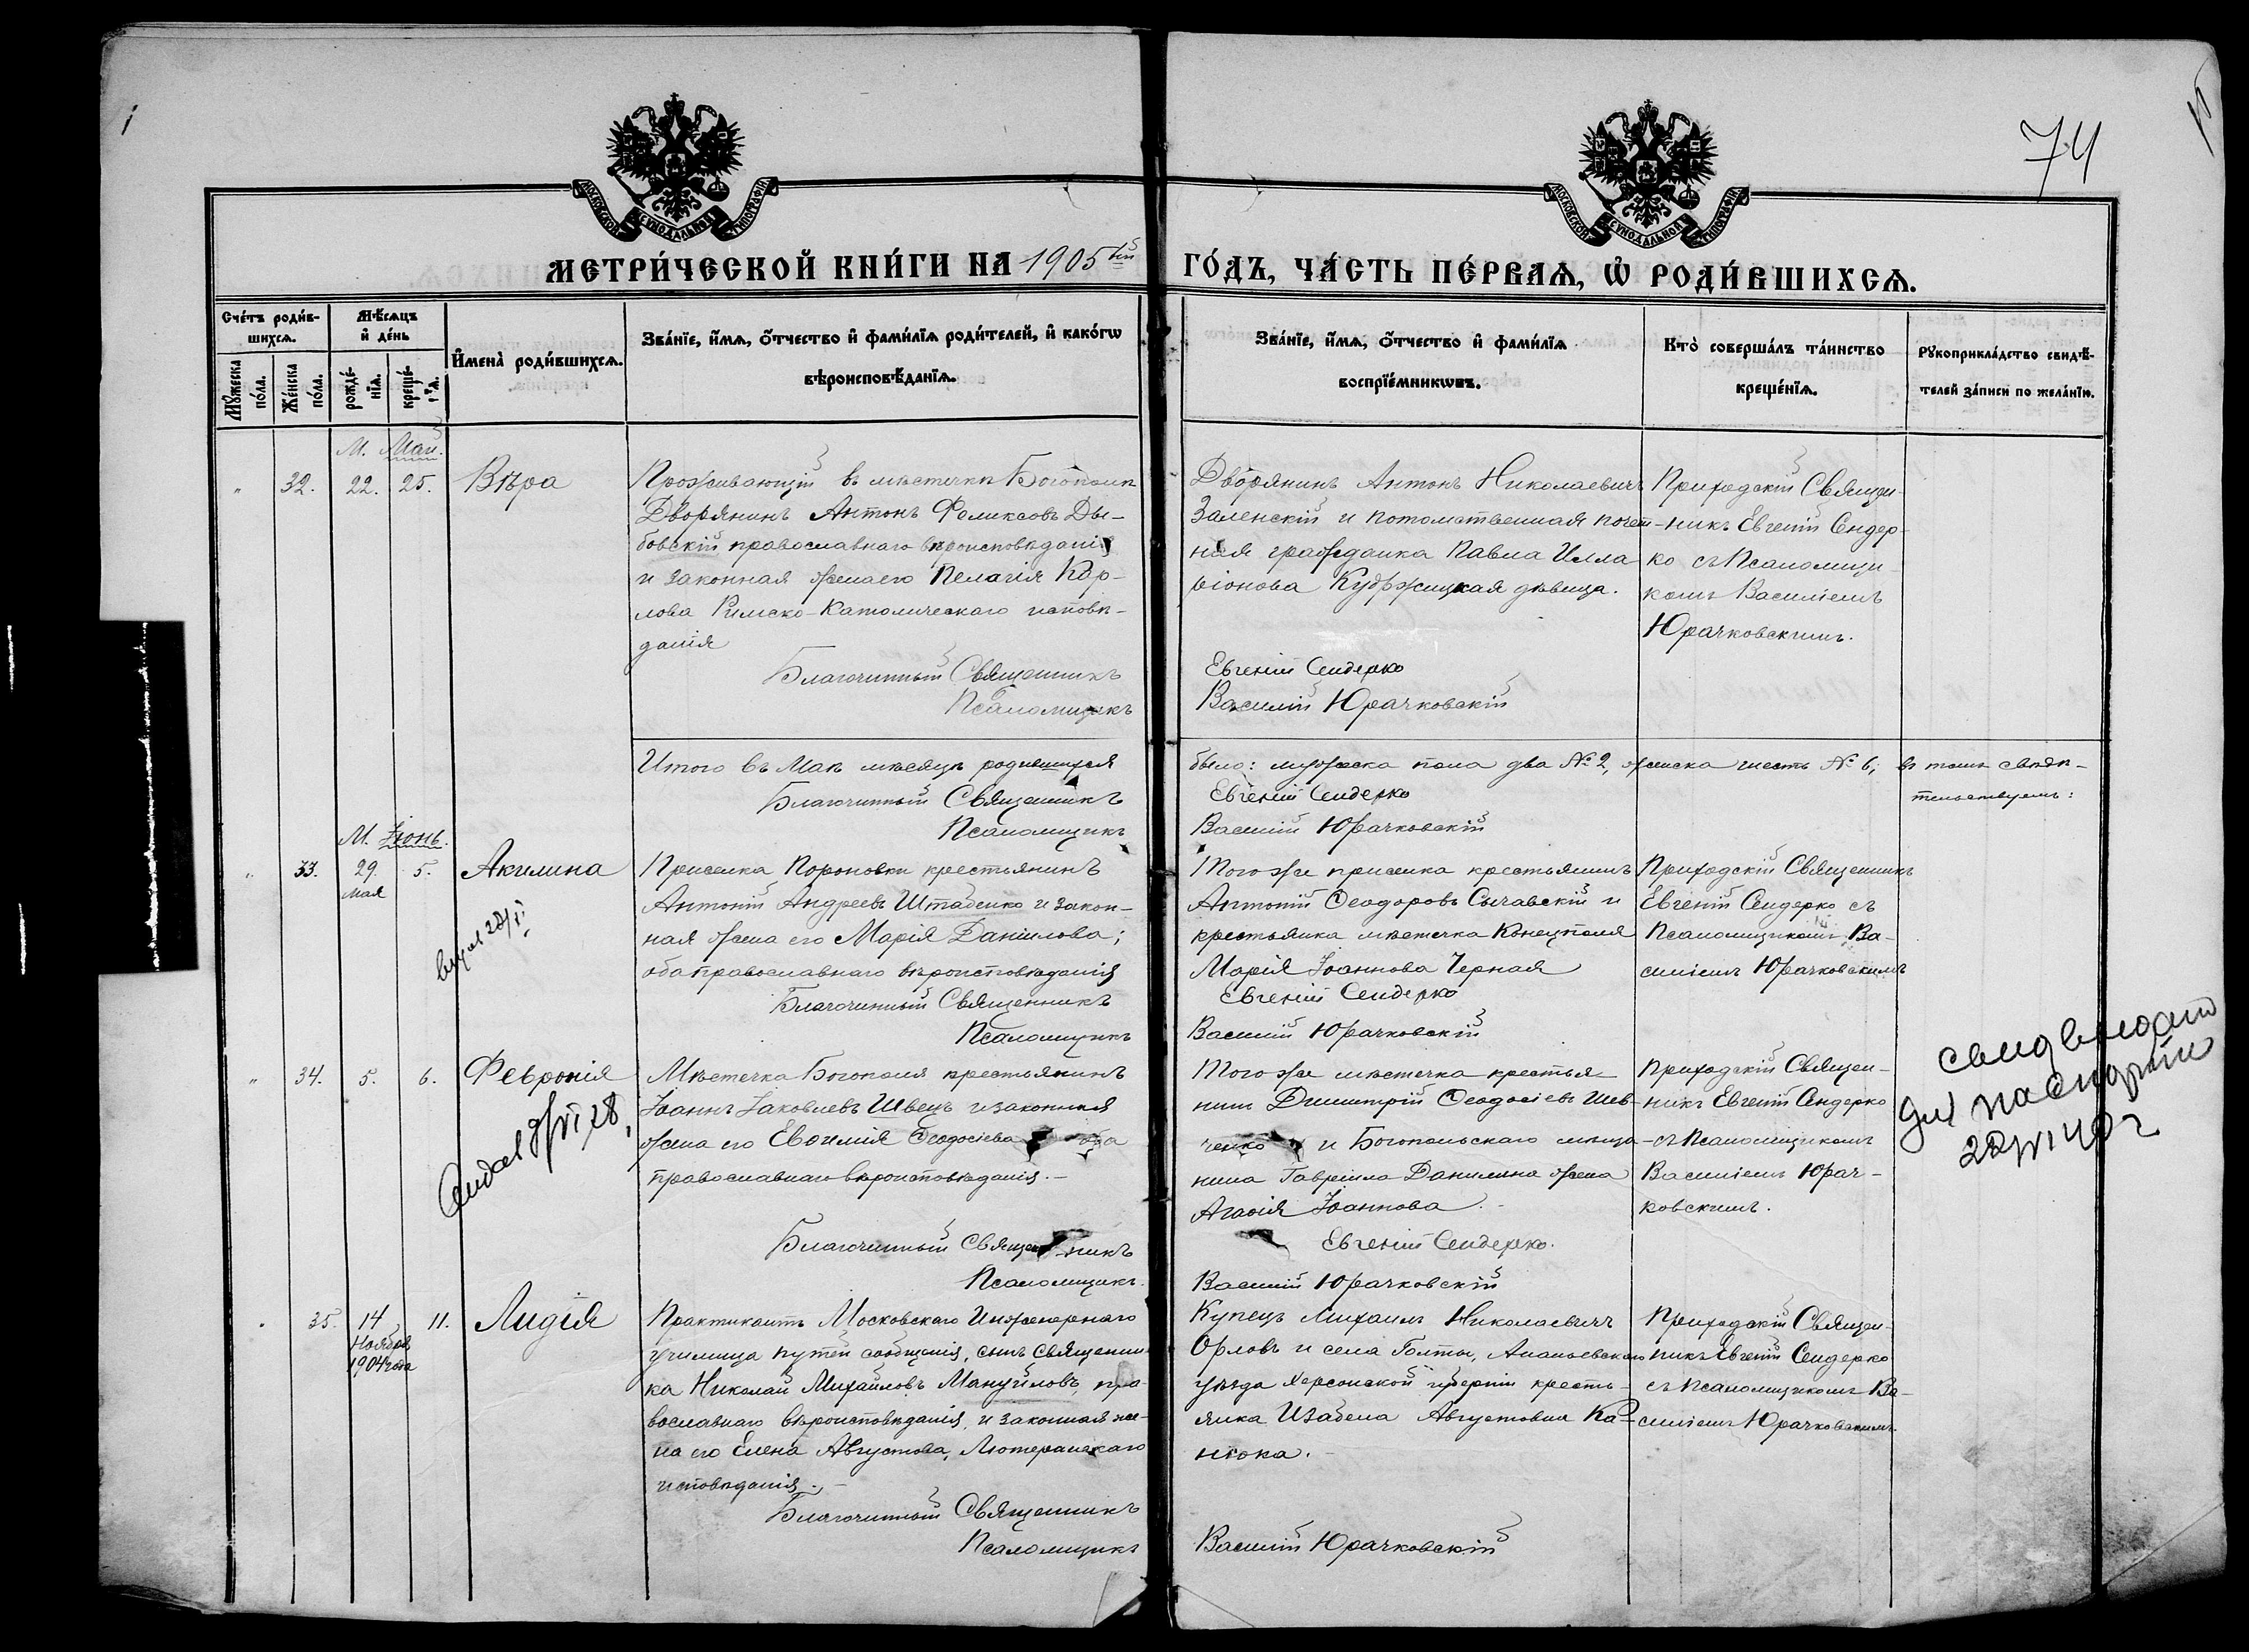 74
МОСКОВСКОЙ СѴНОДАЛЬНОЙ ТИПОГРАФІИ
МОСКОВСКОЙ СѴНОДАЛЬНОЙ ТИПОГРАФІИ
МЕТРИ́ЧЕСКОЙ КНИ́ГИ НА 1905 тый
ГО́ДЪ, ЧА́СТЬ ПЕ́РВАѦ, Ѽ РОДИ́ВШИХСѦ.
Сче́тъ роди́в-
шихсѧ.
Мꙋжеска по́ла.
Же́нска по́ла.
Мѣ́сѧцъ и҆ де́нь
рожде́-
нїѧ.
креще́-
нїѧ.
И҆мена̀ роди́вшихсѧ.
Зва́нїе, и҆́мѧ, ѻ҆́тчество и҆ фами́лїѧ роди́телей, и҆ како́гѡ
вѣроисповѣ́данїѧ.
Зва́нїе, и҆́мѧ, ѻ҆́тчество и҆ фами́лїѧ
воспрїе́мникѡвъ.
Кто̀ соверша́лъ та́инство
креще́нїѧ.
Рꙋкоприкла́дство свидѣ́-
телей за́писи по жела́нїю.
М. Май.
" 32. 22. 25. Вѣра
Проживающій въ мѣстечкѣ Богополѣ
Дворянинъ Антонъ Феликсовъ Ды-
бовскій православнаго вѣроисповѣданія
и законная жена его Пелагія Кар-
лова Римско-Католическаго исповѣ-
данія
Благочинный Священникъ
Псаломщикъ
Дворянинъ Антонъ Николаевичъ
Заленскій и потомственная почет-
ная гражданка Павла Илла-
ріонова Кудржицкая дѣвица.
Евгеній Сендерко
Василій Юрачковскій
Приходскій Священ-
никъ Евгеній Сендер-
ко съ Псаломщи-
комъ Василіемъ
Юрачковскимъ.
Итого въ Маѣ мѣсяцѣ родившихся
было: мужеска пола два № 2, женска шесть № 6, въ томъ свидѣ-
тельствуемъ:
Благочинный Священникъ Евгеній Сендерко
Псаломщикъ Василій Юрачковскій
М. Іюнь.
" 33. 29. мая 5. Акилина
Приселка Пороновки крестьянинъ
Антоній Андреевъ Штабенко и закон-
ная жена его Марія Даніилова;
оба православнаго вѣроисповѣданія
Благочинный Священникъ
Псаломщикъ
Того же приселка крестьянинъ
Антоній Ѳеодоровъ Сычавскій и
крестьянка мѣстечка Конецполя
Марія Іоаннова Черная
Евгеній Сендерко
Василій Юрачковскій
Приходскій Священникъ
Евгеній Сендерко съ
Псаломщикомъ Ва-
силіемъ Юрачковскимъ
" 34. 5. 6. Февронія
Мѣстечка Богополя крестьянинъ
Іоаннъ Іаковлевъ Швецъ и законная
жена его Евѳимія Ѳеодосіева оба
православнаго вѣроисповѣданія.-
Благочинный Священникъ
Псаломщикъ.
Того же мѣстечка крестья-
нинъ Димитрій Ѳеодосіевъ Шев-
ченко и Богопольскаго мѣща-
нина Гавріила Данилина жена
Агаѳія Іоаннова.-
Евгеній Сендерко.
Василій Юрачковскій
Приходскій Священ-
никъ Евгеній Сендерко
съ Псаломщикомъ
Василіемъ Юрач-
ковскимъ.
паспорта
" 35. 14 Ноября 1904 года 11. Лидія
Практикантъ Московскаго Инженернаго
училища путей сообщенія, сынъ священни-
ка Николай Михайловъ Мануйловъ, пра-
вославнаго вѣроисповѣданія, и законная же-
на его Елена Августова, Лютеранскаго
исповѣданія.-
Благочинный Священникъ
Псаломщикъ
Купецъ Михаилъ Николаевичъ
Орловъ и села Голты, Ананьевскаго
уѣзда Херсонской губерніи кресть-
янка Изабела Августовна Ка-
нюка.-
Василій Юрачковскій
Приходскій Священ-
никъ Евгеній Сендерко
съ Псаломщикомъ Ва-
силіемъ Юрачковскимъ.